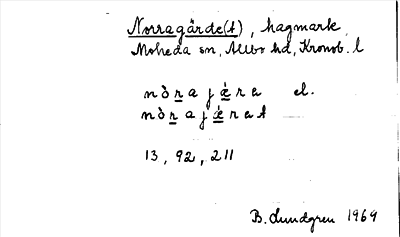 Norragärde(t), hagmark,
Moheda sn, Allbo hd, Kronob. l
nòr̲a jǽ̲ra el.
nòr̲a jǽ̲rat
13, 92, 211
B. Lundgren 1969